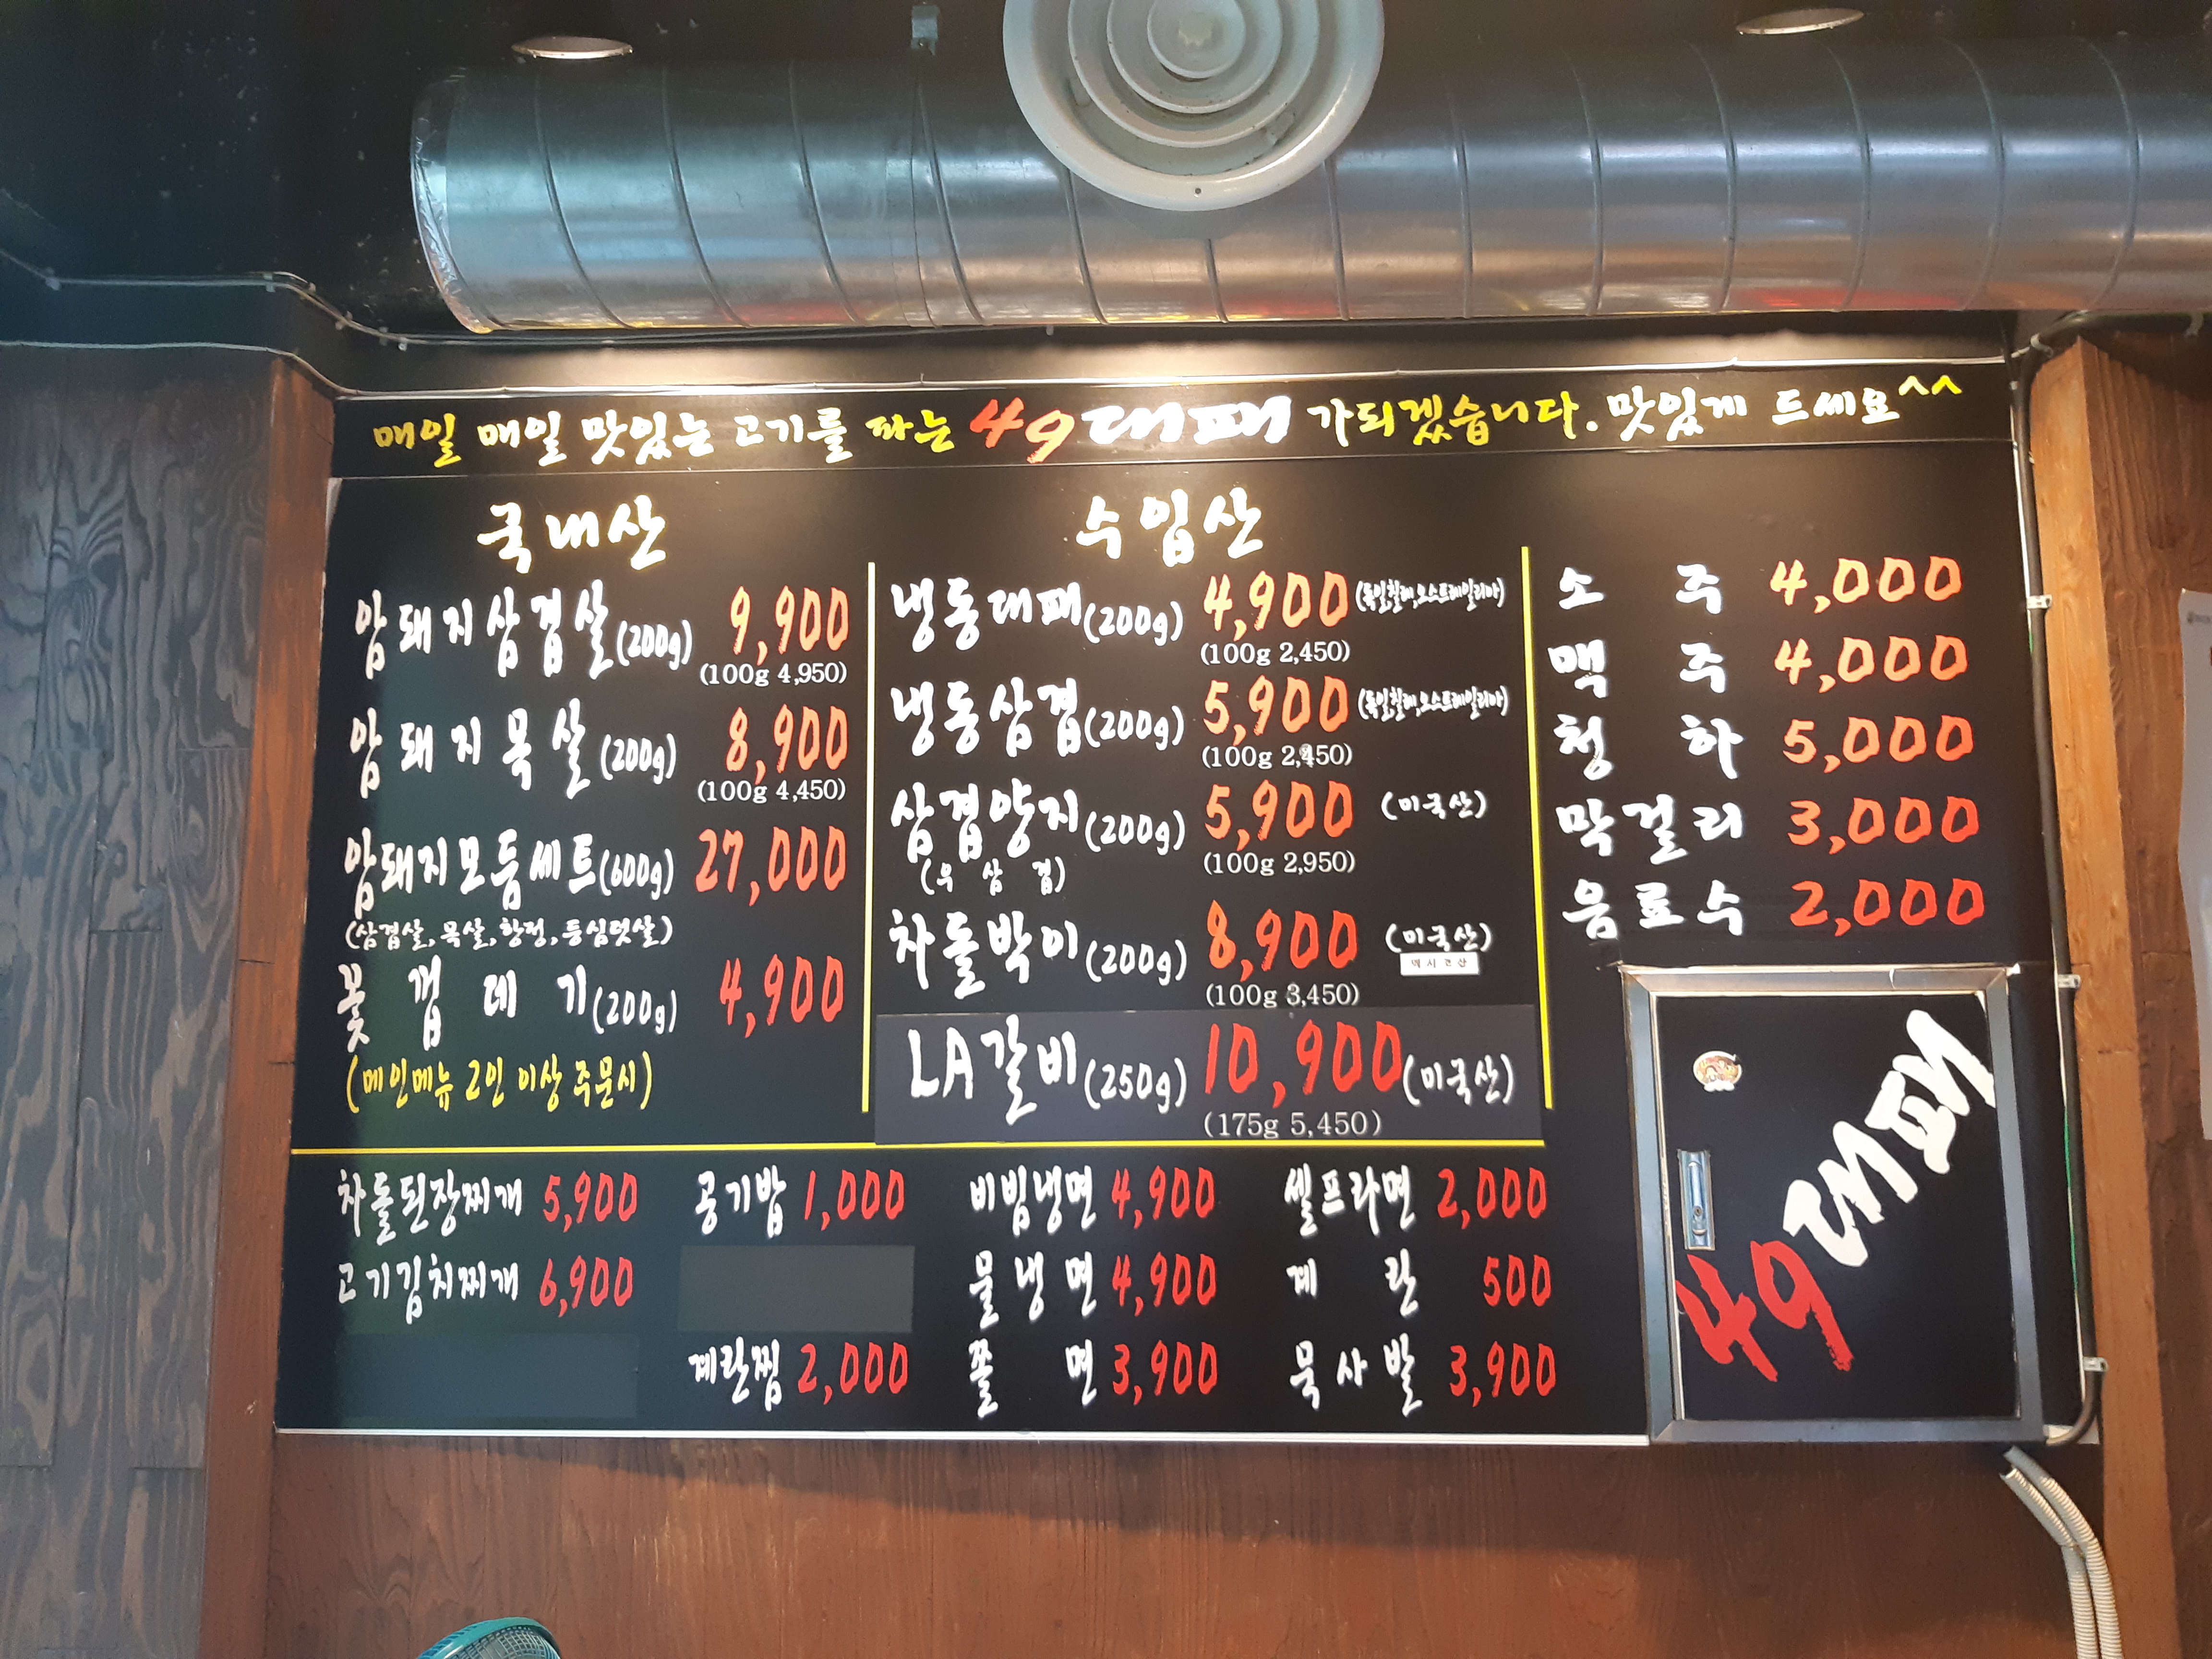 매일 매일 맛있는 고기를 파는 49대패 가되겠습니다. 맛있게 드세요^^
국내산
암돼지삼겹살(200g) 9,900
(100g 4,950)
암돼지목살(200g) 8,900
(100g 4,450)
암돼지모듬세트(600g) 27,000
(삼겹살, 목살, 항정, 등심덧살)
꽃껍데기(200g) 4,900
(메인메뉴 2인 이상 주문시)
수입산
냉동대패(200g) 4,900 (독일,칠레,오스트레일리아)
(100g 2,450)
냉동삼겹(200g) 5,900 (독일,칠레,오스트레일리아)
(100g 2,450)
삼겹양지(200g) 5,900 (미국산)
(우삼겹) (100g 2,950)
차돌박이(200g) 8,900 (미국산)
멕시코산
(100g 3,450)
LA갈비(250g) 10,900 (미국산)
(175g 5,450)
소주 4,000
맥주 4,000
청하 5,000
막걸리 3,000
음료수 2,000
49대패
차돌된장찌개 5,900 공기밥 1,000 비빔냉면 4,900 셀프라면 2,000
고기김치찌개 6,900 물냉면 4,900 계란 500
계란찜 2,000 쫄면 3,900 묵사발 3,900